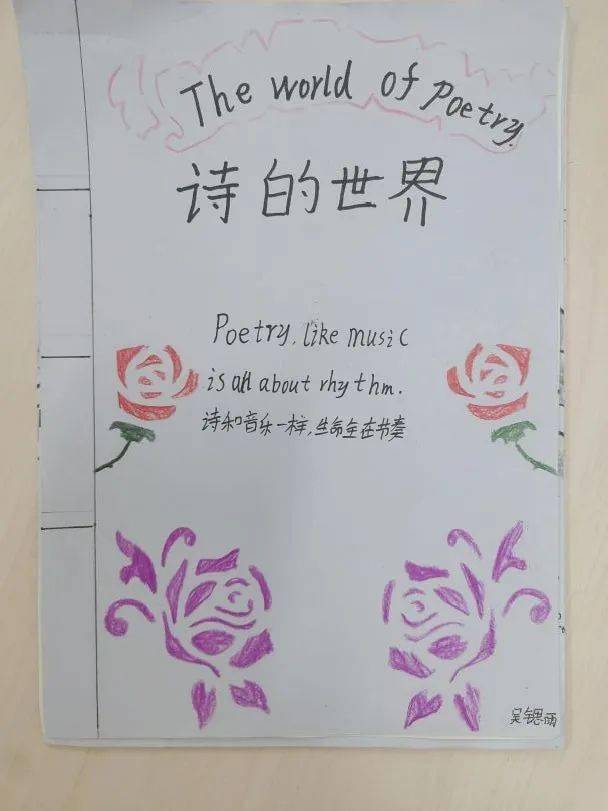 The world of Poetry.
诗的世界
Poetry, like music
is all about rhythm.
诗和音乐一样,生命全在节奏
吴锶雨